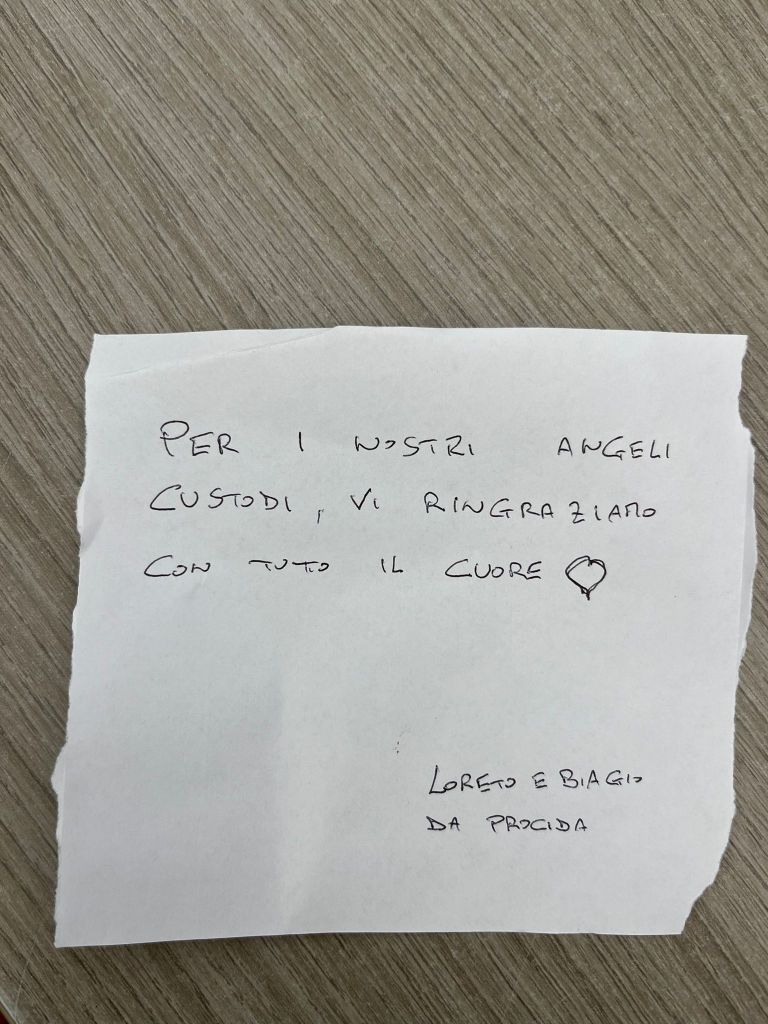 PER I NOSTRI ANGELI
CUSTODI, VI RINGRAZIAMO
CON TUTTO IL CUORE ♡
LORETO E BIAGIO
DA PROCIDA